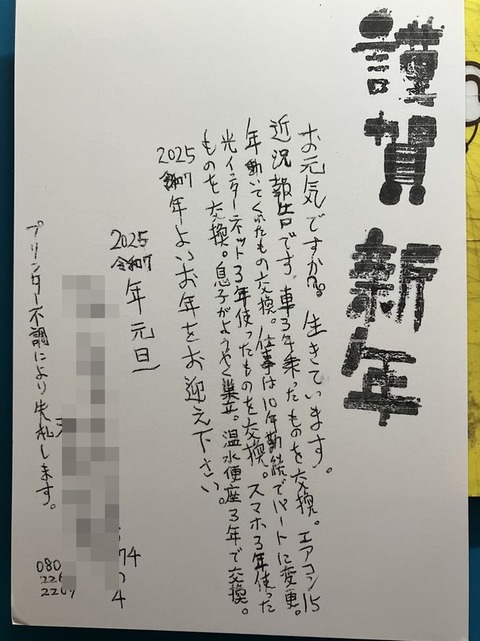 謹賀新年
お元気ですか?生きています。
近況報告です。車3年乗ったものを交換。エアコン15
年働いてくれたもの交換。仕事は10年勤続でパートに変更。
光インターネット3年使ったものを交換。スマホ3年使った
ものを交換。息子がようやく巣立。温水便座3年で交換。
2025 令和7年よいお年をお迎え下さい。
2025 令和7年元旦
プリンター不調により失礼します。
080